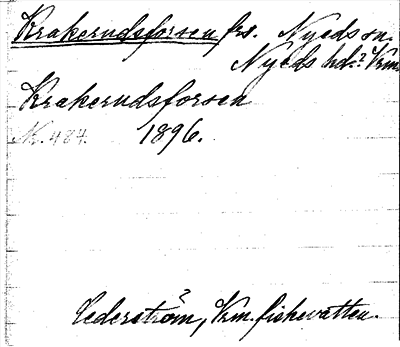 Krakerudsforsen frs. Nyeds sn.
Nyeds hd. Vrm.
Krakerudsforsen
N. 484. 1896.
Cederström, Vrm. fiskevatten.